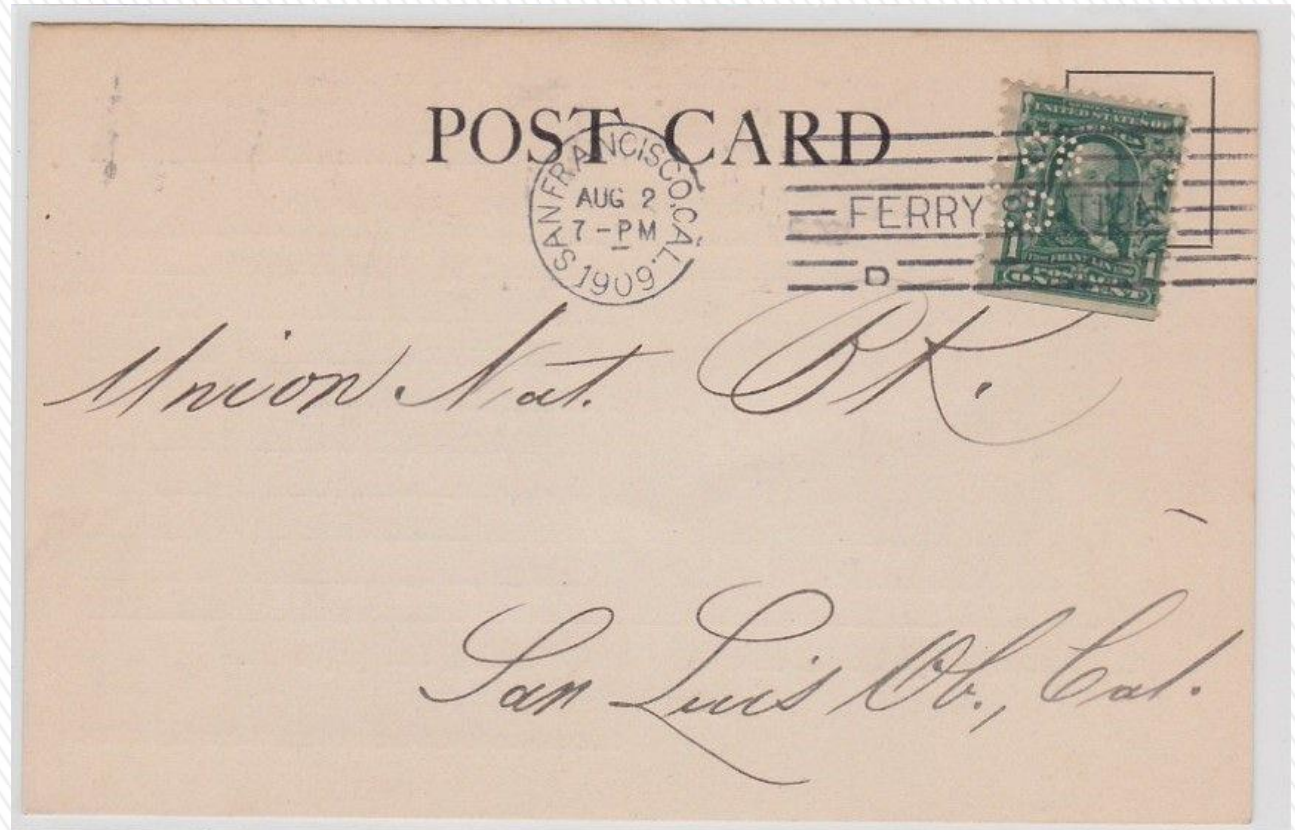 POST CARD
SAN FRANCISCO, CAL.
AUG 2
7 - PM
1909
FERRY STATION
D
UNITED STATES OF
FRANKLIN
1 POSTAGE 1
ONE CENT
Union Nat. Bk.
San Luis Ob., Cal.